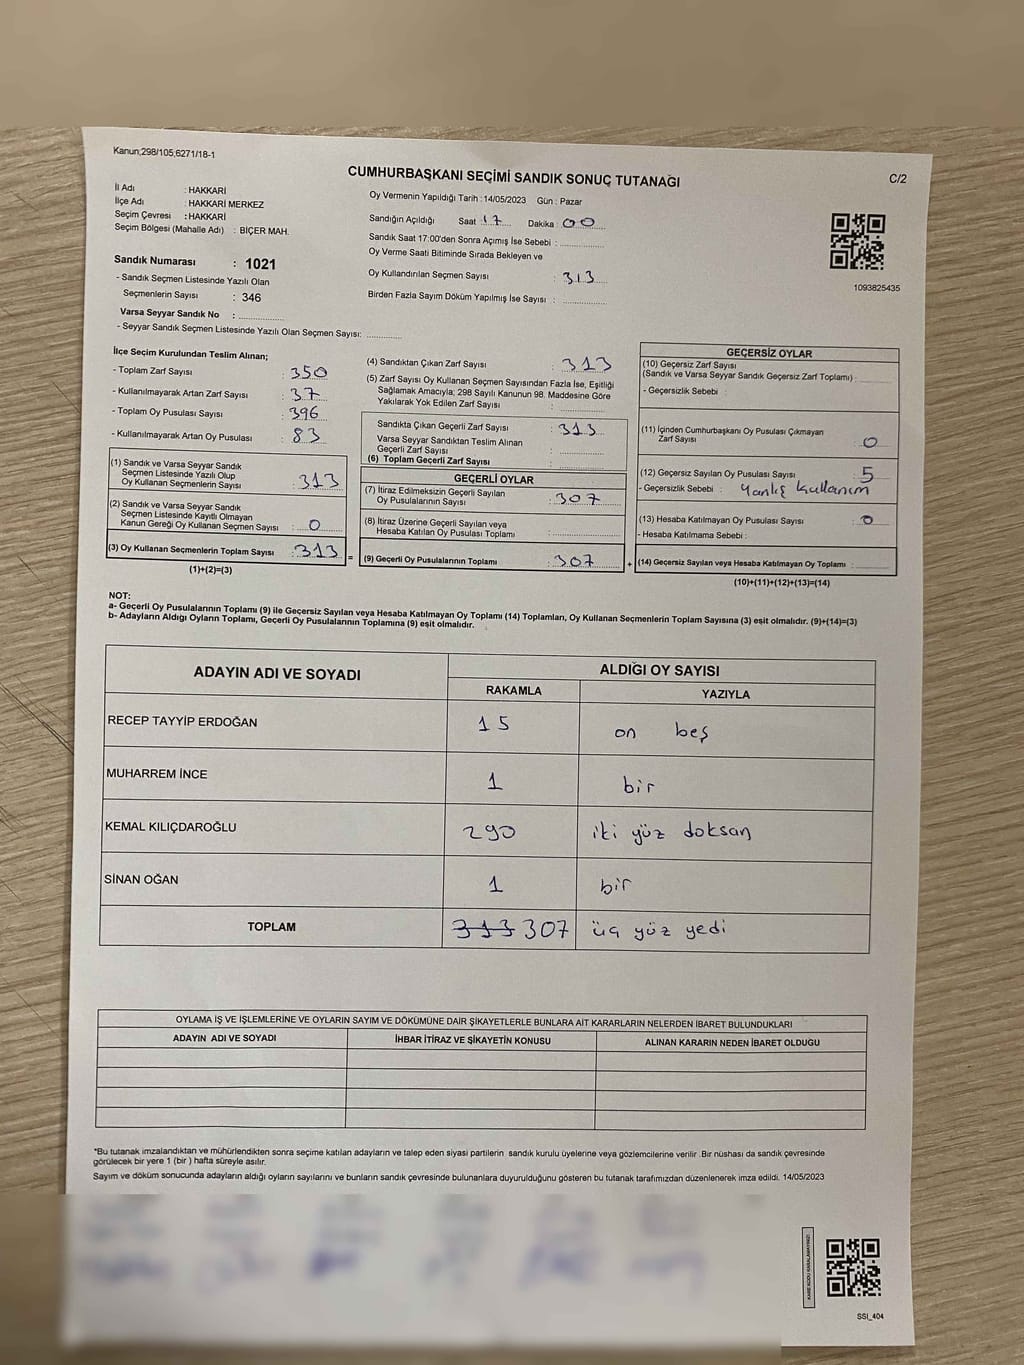 Kanun;298/105;6271/18-1
CUMHURBAŞKANI SEÇİMİ SANDIK SONUÇ TUTANAĞI
C/2
İl Adı : HAKKARİ
İlçe Adı : HAKKARİ MERKEZ
Seçim Çevresi : HAKKARİ
Seçim Bölgesi (Mahalle Adı) : BİÇER MAH.
Sandık Numarası : 1021
- Sandık Seçmen Listesinde Yazılı Olan
Seçmenlerin Sayısı : 346
Varsa Seyyar Sandık No :
- Seyyar Sandık Seçmen Listesinde Yazılı Olan Seçmen Sayısı:
Oy Vermenin Yapıldığı Tarih : 14/05/2023 Gün : Pazar
Sandığın Açıldığı Saat 17 Dakika : 00
Sandık Saat 17:00'den Sonra Açımış İse Sebebi :
Oy Verme Saati Bitiminde Sırada Bekleyen ve
Oy Kullandırılan Seçmen Sayısı : 313
Birden Fazla Sayım Döküm Yapılmış İse Sayısı :
1093825435
İlçe Seçim Kurulundan Teslim Alınan;
- Toplam Zarf Sayısı : 350
- Kullanılmayarak Artan Zarf Sayısı : 37
- Toplam Oy Pusulası Sayısı : 396
- Kullanılmayarak Artan Oy Pusulası : 83
(1) Sandık ve Varsa Seyyar Sandık
Seçmen Listesinde Yazılı Olup
Oy Kullanan Seçmenlerin Sayısı : 313
(2) Sandık ve Varsa Seyyar Sandık
Seçmen Listesinde Kayıtlı Olmayan
Kanun Gereği Oy Kullanan Seçmen Sayısı : 0
(3) Oy Kullanan Seçmenlerin Toplam Sayısı : 313 =
(1)+(2)=(3)
(4) Sandıktan Çıkan Zarf Sayısı : 313
(5) Zarf Sayısı Oy Kullanan Seçmen Sayısından Fazla İse, Eşitliği
Sağlamak Amacıyla; 298 Sayılı Kanunun 98. Maddesine Göre
Yakılarak Yok Edilen Zarf Sayısı :
Sandıkta Çıkan Geçerli Zarf Sayısı : 313
Varsa Seyyar Sandıktan Teslim Alınan
Geçerli Zarf Sayısı :
(6) Toplam Geçerli Zarf Sayısı :
GEÇERLİ OYLAR
(7) İtiraz Edilmeksizin Geçerli Sayılan
Oy Pusulalarının Sayısı : 307
(8) İtiraz Üzerine Geçerli Sayılan veya
Hesaba Katılan Oy Pusulası Toplamı :
(9) Geçerli Oy Pusulalarının Toplamı : 307 +
GEÇERSİZ OYLAR
(10) Geçersiz Zarf Sayısı
(Sandık ve Varsa Seyyar Sandık Geçersiz Zarf Toplamı) :
- Geçersizlik Sebebi :
(11) İçinden Cumhurbaşkanı Oy Pusulası Çıkmayan
Zarf Sayısı : 0
(12) Geçersiz Sayılan Oy Pusulası Sayısı : 5
- Geçersizlik Sebebi : Yanlış kullanım
(13) Hesaba Katılmayan Oy Pusulası Sayısı : 0
- Hesaba Katılmama Sebebi :
(14) Geçersiz Sayılan veya Hesaba Katılmayan Oy Toplamı :
(10)+(11)+(12)+(13)=(14)
NOT:
a- Geçerli Oy Pusulalarının Toplamı (9) ile Geçersiz Sayılan veya Hesaba Katılmayan Oy Toplamı (14) Toplamları, Oy Kullanan Seçmenlerin Toplam Sayısına (3) eşit olmalıdır. (9)+(14)=(3)
b- Adayların Aldığı Oyların Toplamı, Geçerli Oy Pusulalarının Toplamına (9) eşit olmalıdır.
ADAYIN ADI VE SOYADI
ALDIĞI OY SAYISI
RAKAMLA YAZIYLA
RECEP TAYYİP ERDOĞAN 15 on beş
MUHARREM İNCE 1 bir
KEMAL KILIÇDAROĞLU 290 iki yüz doksan
SİNAN OĞAN 1 bir
TOPLAM 313 307 üç yüz yedi
OYLAMA İŞ VE İŞLEMLERİNE VE OYLARIN SAYIM VE DÖKÜMÜNE DAİR ŞİKAYETLERLE BUNLARA AİT KARARLARIN NELERDEN İBARET BULUNDUKLARI
ADAYIN ADI VE SOYADI İHBAR İTİRAZ VE ŞİKAYETİN KONUSU ALINAN KARARIN NEDEN İBARET OLDUĞU
*Bu tutanak imzalandıktan ve mühürlendikten sonra seçime katılan adayların ve talep eden siyasi partilerin sandık kurulu üyelerine veya gözlemcilerine verilir. Bir nüshası da sandık çevresinde
görülecek bir yere 1 (bir ) hafta süreyle asılır.
Sayım ve döküm sonucunda adayların aldığı oyların sayılarını ve bunların sandık çevresinde bulunanlara duyurulduğunu gösteren bu tutanak tarafımızdan düzenlenerek imza edildi. 14/05/2023
KARE KODU KARALAMAYINIZ!
SSI_404